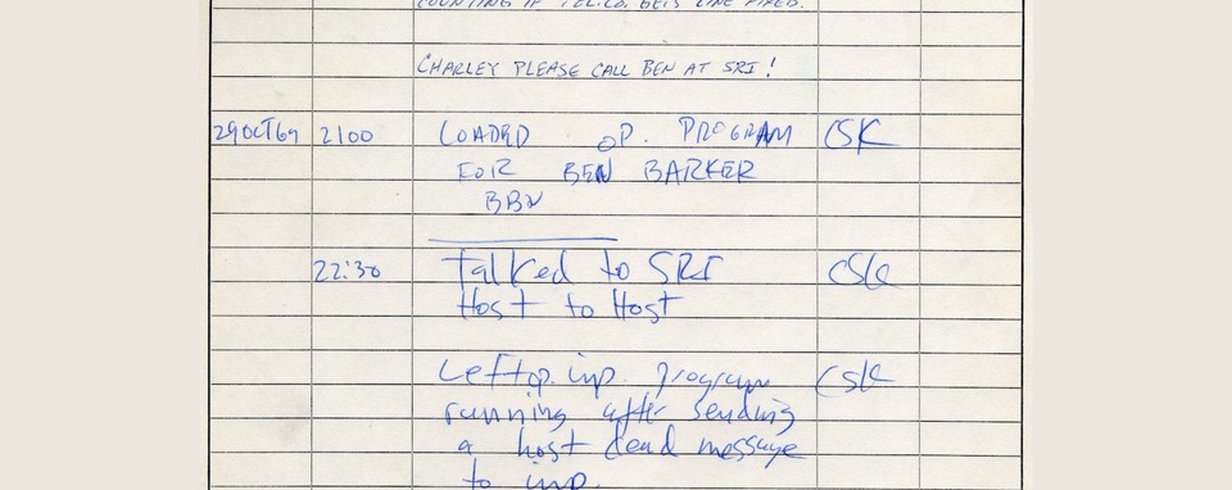 COUNTING IF TELCO. GETS LINE FIXED.
CHARLEY PLEASE CALL BEN AT SRI!
29OCT69 2100 LOADED OP. PROGRAM CSK
FOR BEN BARKER
BBN
22:30 Talked to SRI CSK
Host to Host
Left op. imp. program CSK
running after sending
a host dead message
to imp.